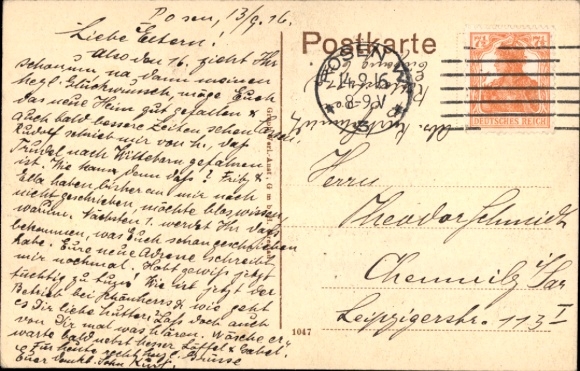 Posen, 13/9.16.
Liebe Eltern!
Also den 16. zieht Ihr
schon um, na dann meinen
herzl. Glückwunsch, möge Euch
das neue Heim gut gefallen &
auch bald bessere Zeiten sehen
Rudolf schrieb mir von H., daß
Trudel nach Wittebern gefahren
ist. Wie kann denn daß? Fritz &
Ella haben bisher an mir noch
nicht geschrieben, möchte blos wissen
warum. Nächsten 1. werdet Ihr daß
bekommen, was Euch schon geschrieben
habe. Eure neue Adresse schreibt
mir nochmal. Habt gewiß jetzt
tüchtig zu tun! Wie ist jetzt der
Betrieb bei & wie geht
es Dir liebe Mutter? Laß doch auch
von Dir mal was hören. Wäsche er-
warte bald nebst Messer, Löffel & Gabel.
Für heute recht herzl. Grüsse
Euer dankb. Sohn Kurt.
Postkarte
POSEN
14.9.16
8-9 V
7½ 7½
DEUTSCHES REICH
Abs.
Herrn
Theodor Schmidt
Chemnitz i/Sa
Leipzigerstr. 113 I
1047